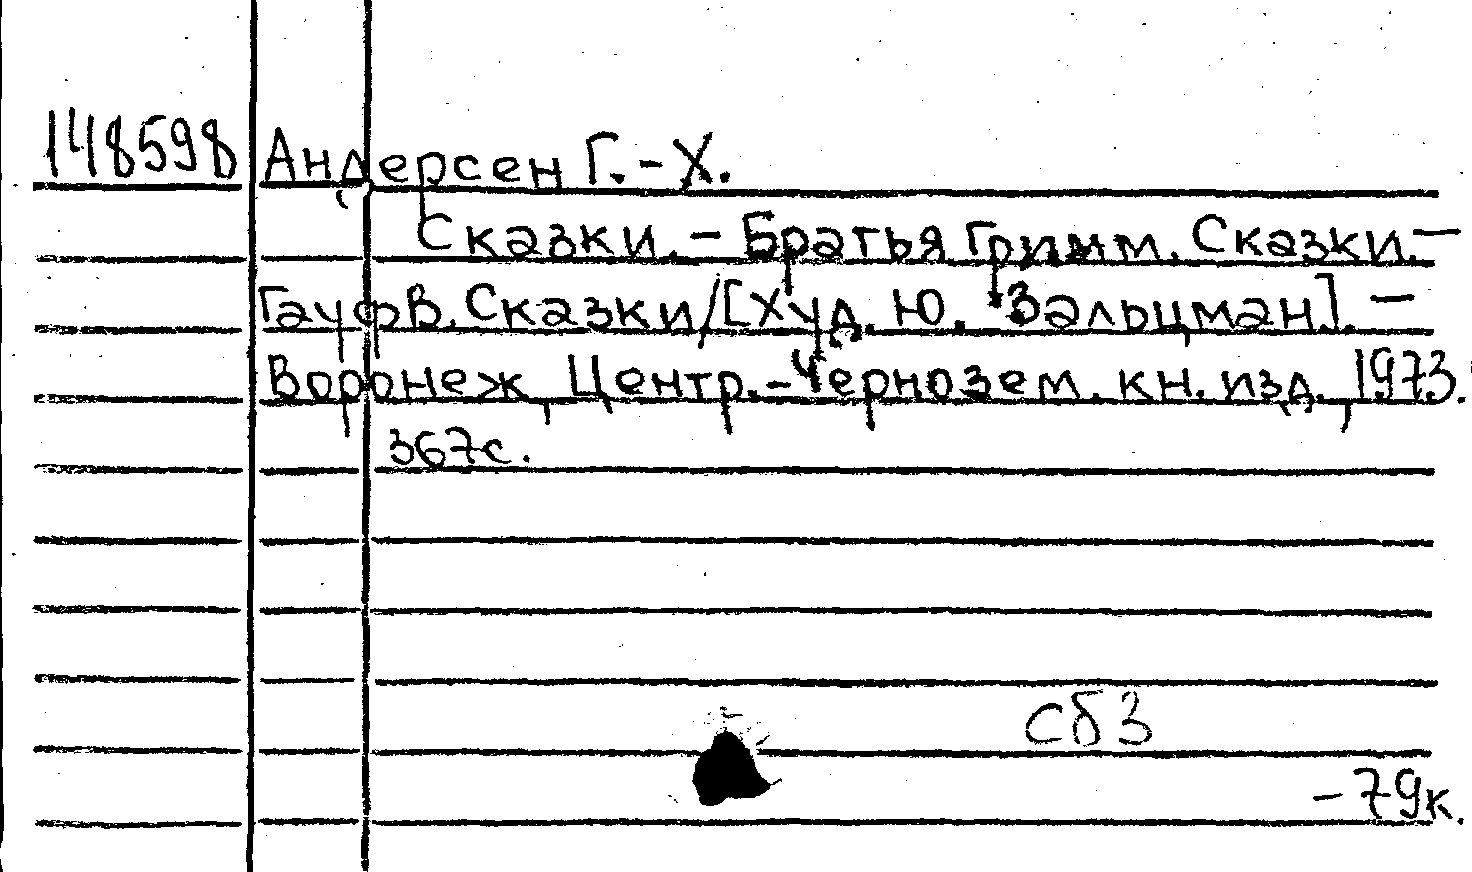 148598 Андерсен Г.-Х.
Сказки. - Братья Гримм. Сказки. -
Гауф В. Сказки/[Худ. Ю. Зальцман]. -
Воронеж, Центр.-Чернозем. кн. изд., 1973.
367с.
сб 3
-79к.